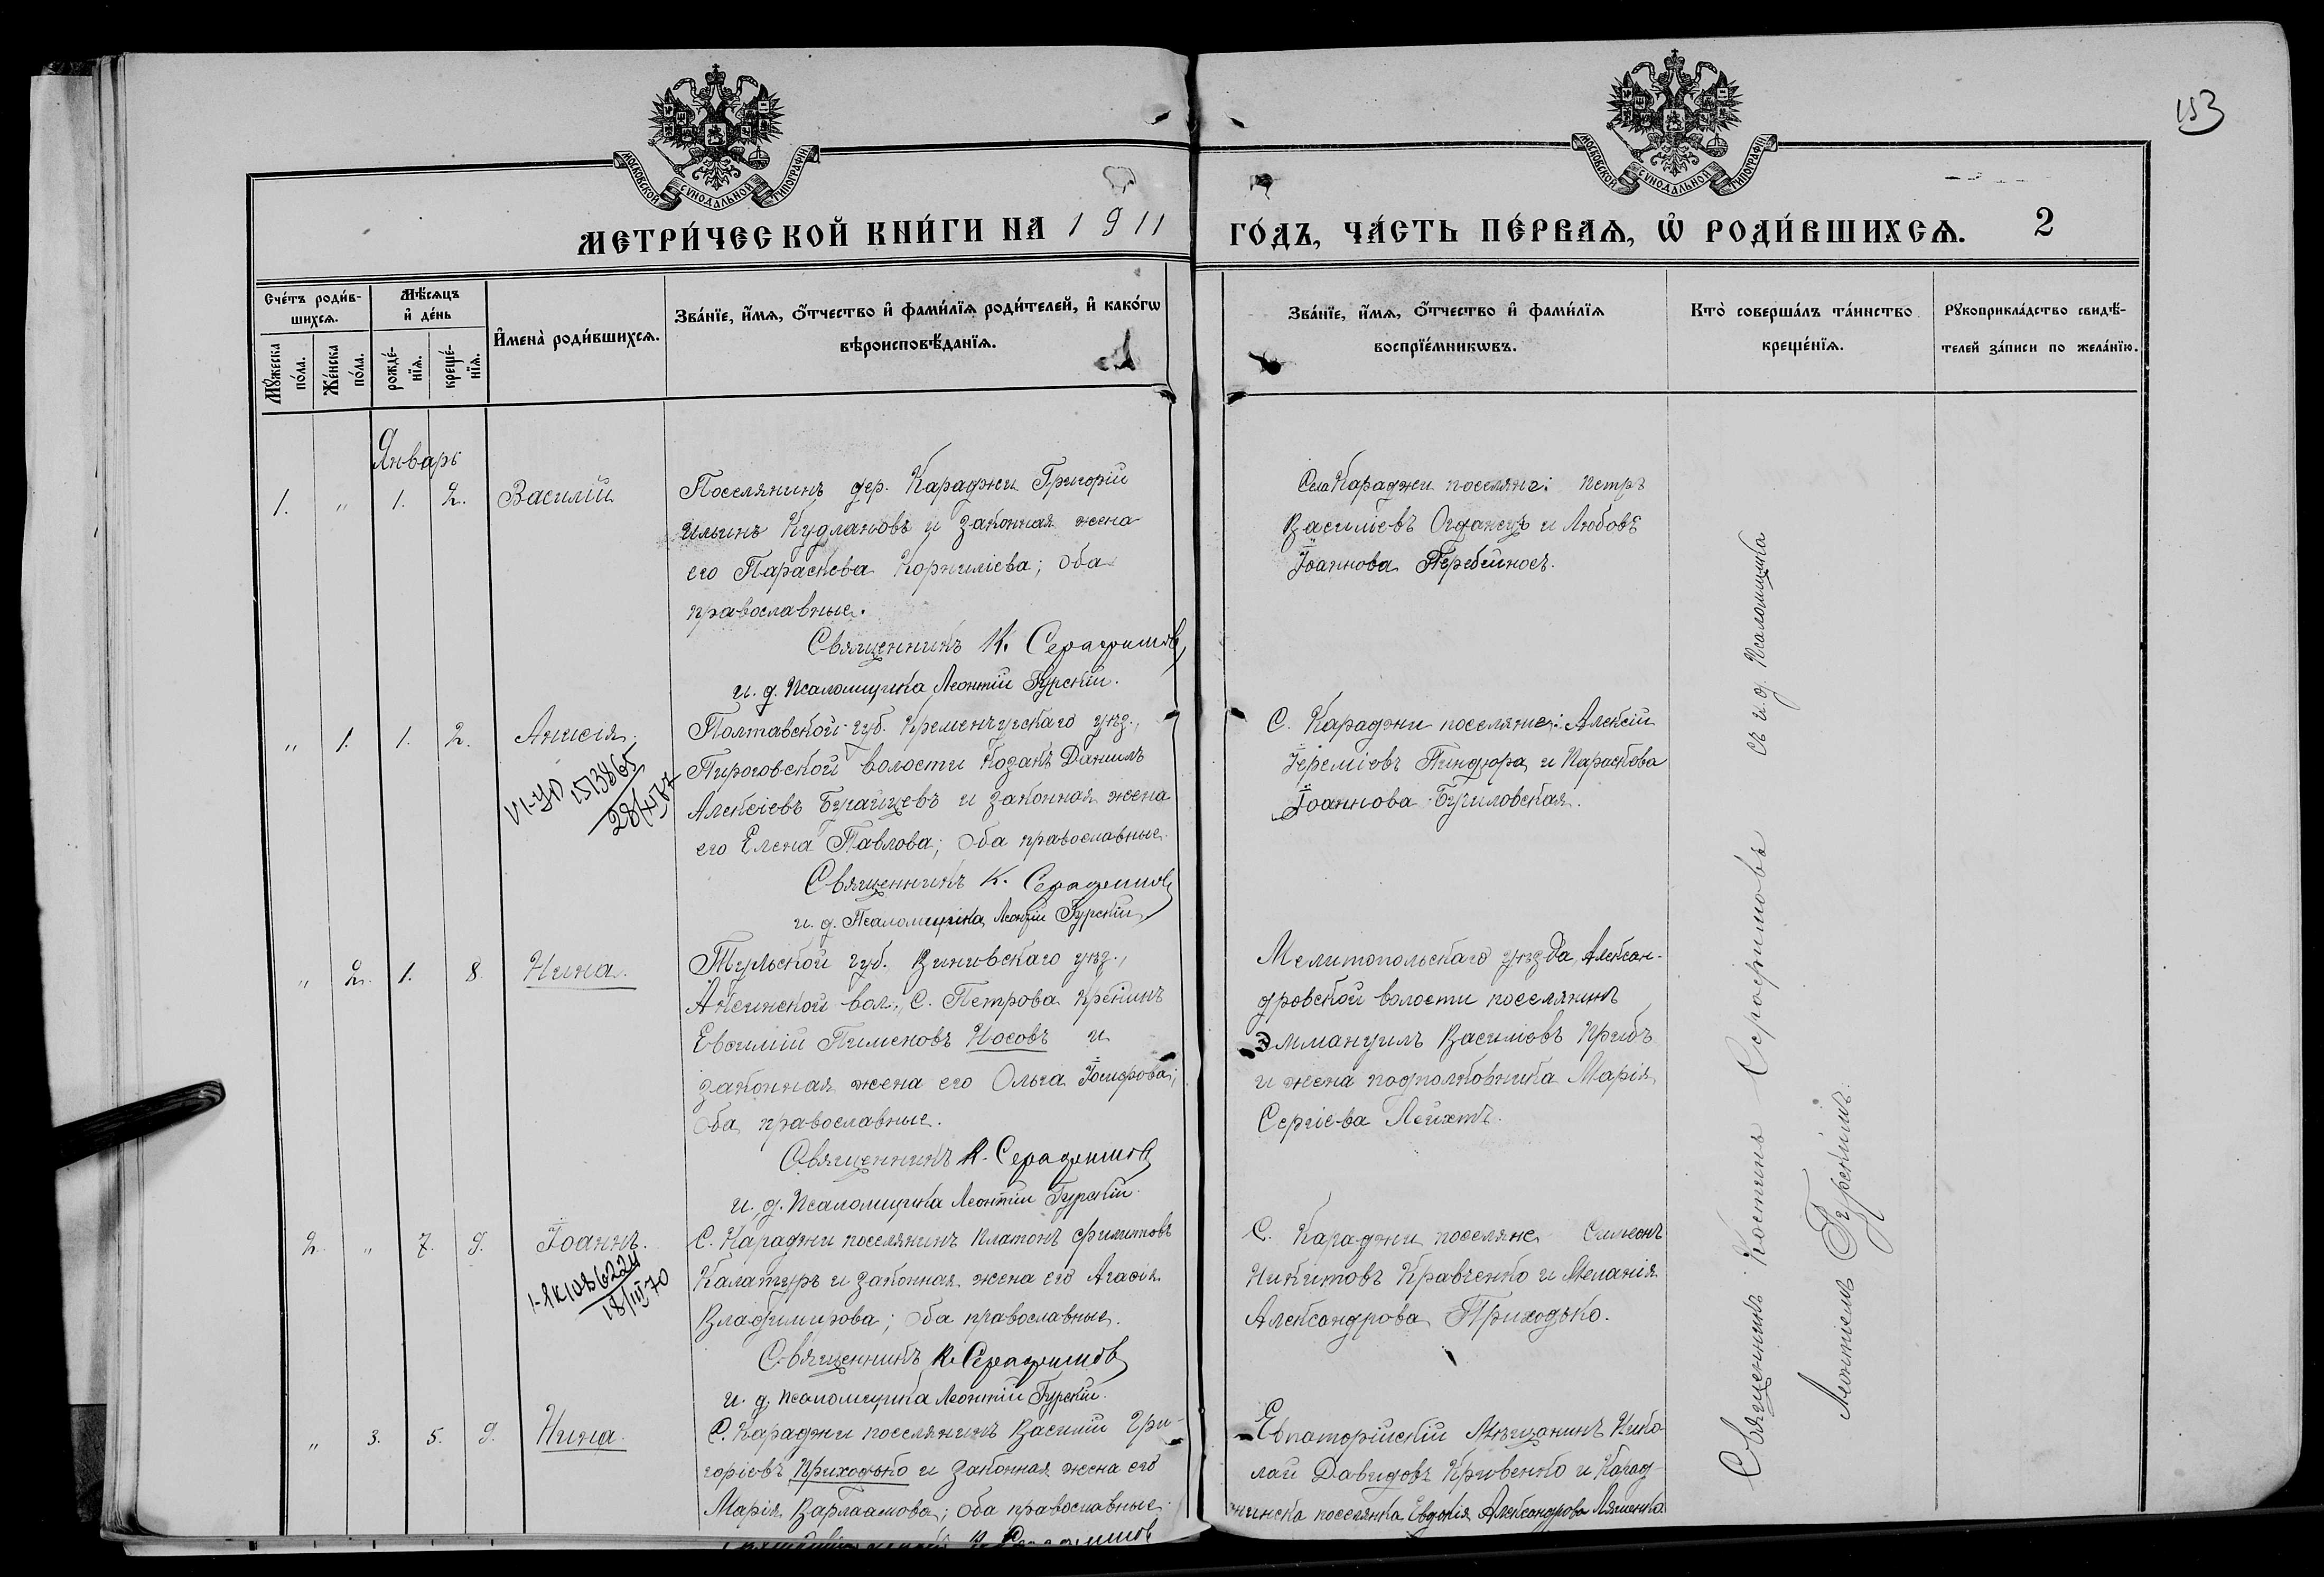 153
МОСКОВСКОЙ СѴНОДАЛЬНОЙ ТИПОГРАФІИ
МОСКОВСКОЙ СѴНОДАЛЬНОЙ ТИПОГРАФІИ
МЕТРИ́ЧЕСКОЙ КНИ́ГИ НА 1911
ГО́ДЪ, ЧА́СТЬ ПЕ́РВАѦ, Ѡ҆ РОДИ́ВШИХСѦ. 2
Сче́тъ роди́в-
шихсѧ.
Мꙋ́жеска
по́ла.
Же́нска
по́ла.
Мѣ́сѧцъ
и҆ де́нь
рожде́-
нїѧ.
креще́-
нїѧ.
И҆мена̀ роди́вшихсѧ.
Зва́нїе, и҆́мѧ, ѻ҆́тчество и҆ фами́лїѧ роди́телей, и҆ како́гѡ
вѣроисповѣ́данїѧ.
Зва́нїе, и҆́мѧ, ѻ҆́тчество и҆ фами́лїѧ
воспрїе́мникѡвъ.
Кто̀ соверша́лъ та́инство
креще́нїѧ.
Рꙋкоприкла́дство свидѣ́-
телей за́писи по жела́нїю.
Январь
1. " 1. 2. Василій
Поселянинъ дер. Караджи Григорій
Ильинъ Кудлановъ и законная жена
его Параскева Корниліева; оба
православные.
Священникъ К. Серафимовъ
и. д. Псаломщика Леонтій Гурскій.
Села Караджи поселяне: Петръ
Василіевъ и Любовь
Іоаннова Перебейносъ.
" 1. 1. 2. Анисія.
VI-УО 1513865
28/XI 87
Полтавской губ. Кременчугскаго уѣз.,
Пироговской волости козакъ Даніилъ
Алексіевъ Бугайцевъ и законная жена
его Елена Павлова; оба православные.
Священникъ К. Серафимовъ
и. д. Псаломщика Леонтій Гурскій
С. Караджи поселяне: Алексій
Іереміевъ Пиндюра и Параскева
Іоаннова Бугиловская.
" 2. 1. 8. Нина.
Тульской губ. Веневскаго уѣз.,
вол., С. Петрова кр-нинъ
Евѳимій Пименовъ Носовъ и
законная жена его Ольга Іосифова;
оба православные.
Священникъ К. Серафимовъ
и. д. Псаломщика Леонтій Гурскій.
Мелитопольскаго уѣзда, Алексан-
дровской волости поселянинъ
Эммануилъ Василіевъ Грибъ
и жена подполковника Марія
Сергіева Лейхтъ.
2. " 7. 9. Іоаннъ.
1-ЯК 1086224
18/III 70
С. Караджи поселянинъ Платонъ Филиповъ
Калатуръ и законная жена его Агаѳія
Владимирова; оба православные.
Священникъ К. Серафимовъ
и. д. псаломщика Леонтій Гурскій.
С. Караджи поселяне Симеонъ
Никитовъ Кравченко и Меланія
Александрова Приходько.
" 3. 5. 9. Нина.
С. Караджи поселянинъ Василій Гри-
горіевъ Приходько и законная жена его
Марія Варлаамова; оба православные.
Евпаторійскій Мѣщанинъ Нико-
лай Давидовъ Кривенко и Карад-
жинска поселянка Евдокія Александрова Ляшенко
Священникъ Костинъ Серафимовъ съ и. д. Псаломщика
Леонтіемъ Гурскимъ.